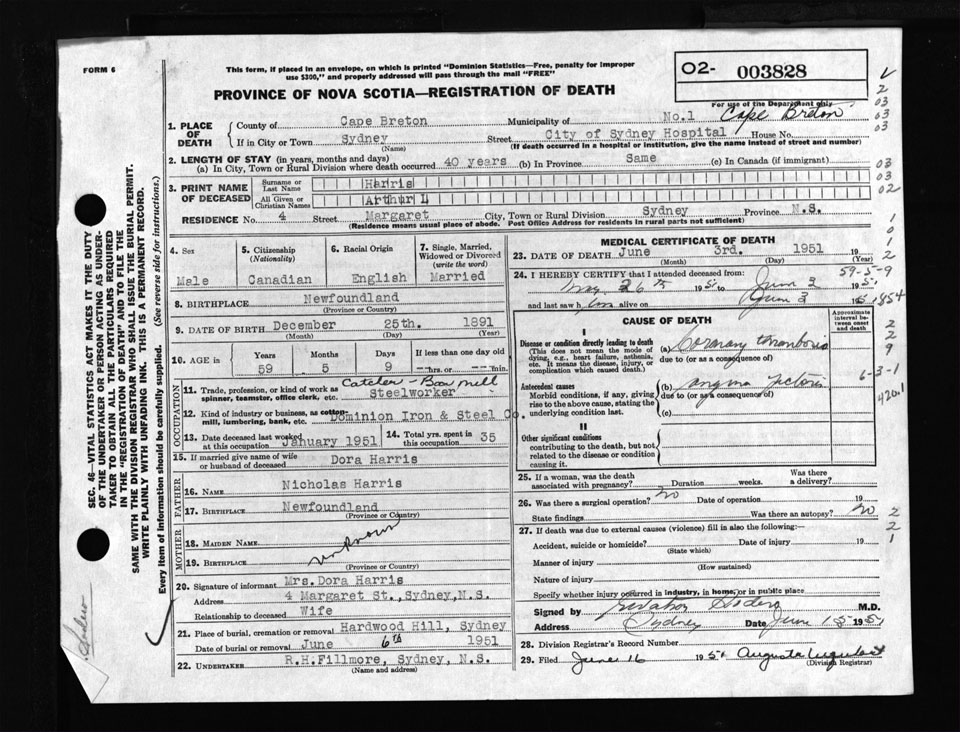 FORM 6
This form, if placed in an envelope, on which is printed "Dominion Statistics—Free, penalty for improper
use $300," and properly addressed will pass through the mail "FREE"
O2- 003828
For use of the Department only
PROVINCE OF NOVA SCOTIA—REGISTRATION OF DEATH
1. PLACE OF DEATH { County of Cape Breton Municipality of No.1 Cape Breton
If in City or Town Sydney (Name) Street City of Sydney Hospital House No.
(If death occurred in a hospital or institution, give the name instead of street and number)
2. LENGTH OF STAY (in years, months and days)
(a) In City, Town or Rural Division where death occurred 40 years (b) In Province Same (c) In Canada (if immigrant)
3. PRINT NAME OF DECEASED { Surname or Last Name Harris
All Given or Christian Names Arthur L
RESIDENCE No. 4 Street Margaret City, Town or Rural Division Sydney Province N.S.
(Residence means usual place of abode. Post Office Address for residents in rural parts not sufficient)
4. Sex Male
5. Citizenship (Nationality) Canadian
6. Racial Origin English
7. Single, Married, Widowed or Divorced (write the word) Married
8. BIRTHPLACE Newfoundland
(Province or Country)
9. DATE OF BIRTH December 25th. 1891
(Month) (Day) (Year)
10. AGE in Years 59 Months 5 Days 9 If less than one day old hrs. or min.
OCCUPATION
11. Trade, profession, or kind of work as spinner, teamster, office clerk, etc. Catcher - Bar mill Steelworker
12. Kind of industry or business, as cotton-mill, lumbering, bank, etc. Dominion Iron & Steel Co.
13. Date deceased last worked at this occupation January 1951
14. Total yrs. spent in this occupation 35
15. If married give name of wife or husband of deceased Dora Harris
FATHER
16. NAME Nicholas Harris
17. BIRTHPLACE Newfoundland
(Province or Country)
MOTHER
18. MAIDEN NAME
unknown
19. BIRTHPLACE
(Province or Country)
20. Signature of informant Mrs. Dora Harris
Address 4 Margaret St., Sydney, N.S.
Relationship to deceased Wife
21. Place of burial, cremation or removal Hardwood Hill, Sydney
Date of burial or removal June 6th 1951
22. UNDERTAKER R.H.Fillmore, Sydney, N.S.
(Name and address)
MEDICAL CERTIFICATE OF DEATH
23. DATE OF DEATH June 3rd. 1951 19
(Month) (Day)
24. I HEREBY CERTIFY that I attended deceased from:
May 26th 1951 June 3 1951
and last saw him alive on June 3 1951
59-5-9
CAUSE OF DEATH
Approximate interval between onset and death
I
Disease or condition directly leading to death
(This does not mean the mode of dying, e.g., heart failure, asthenia, etc. It means the disease, injury, or complication which caused death.)
(a) Coronary thrombosis
due to (or as a consequence of)
Antecedent causes
Morbid conditions, if any, giving rise to the above cause, stating the underlying condition last.
(b) angina pectoris
due to (or as a consequence of)
(c)
II
Other significant conditions
contributing to the death, but not related to the disease or condition causing it.
6-3-1
420.1
25. If a woman, was the death associated with pregnancy? Duration weeks. Was there a delivery?
26. Was there a surgical operation? no Date of operation 19
State findings Was there an autopsy? no
27. If death was due to external causes (violence) fill in also the following:—
Accident, suicide or homicide? Date of injury 19
(State which)
Manner of injury
(How sustained)
Nature of injury
Specify whether injury occurred in industry, in home, or in public place
Signed by M.D.
Address Sydney Date June 15 1951
28. Division Registrar's Record Number
29. Filed June 16 1951 Augusta
(Division Registrar)
SEC. 46—VITAL STATISTICS ACT MAKES IT THE DUTY
OF THE UNDERTAKER OR PERSON ACTING AS UNDER-
TAKER TO OBTAIN ALL THE PARTICULARS REQUIRED
IN THE "REGISTRATION OF DEATH" AND TO FILE THE
SAME WITH THE DIVISION REGISTRAR WHO SHALL ISSUE THE BURIAL PERMIT.
WRITE PLAINLY WITH UNFADING INK. THIS IS A PERMANENT RECORD.
Every item of information should be carefully supplied. (See reverse side for instructions.)